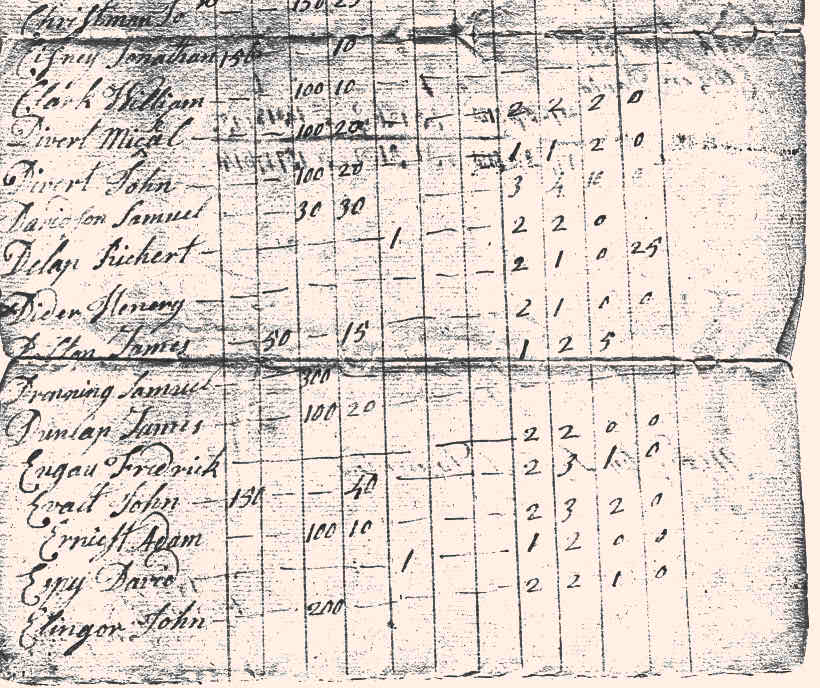 Christman Jo 150 25
Cisney Jonathan 150 — 10
Clark William — — 100 10 2 2 2 0
Divert Mical — — 100 20 1 1 2 0
Divert John — — 100 20 3 4 10 0
Davidson Samuel — — 30 30 2 2 0
Delap Richert — — — — 1 — — 2 1 0 25
Dider Henery — — — — — — — 2 1 0 0
Diston James — 50 — 15 — — — 1 2 5
Dronning Samuel — — 300
Dunlap James — — 100 20 — — — 2 2 0 0
Eugau Fredrick — 2 3 1 0
Evalt John — 150 — — 40 — — — 2 3 2 0
Erniest Adam — — 100 10 — — — 1 2 0 0
Espy David — — — — 1 — — 2 2 1 0
Elingor John — — 200